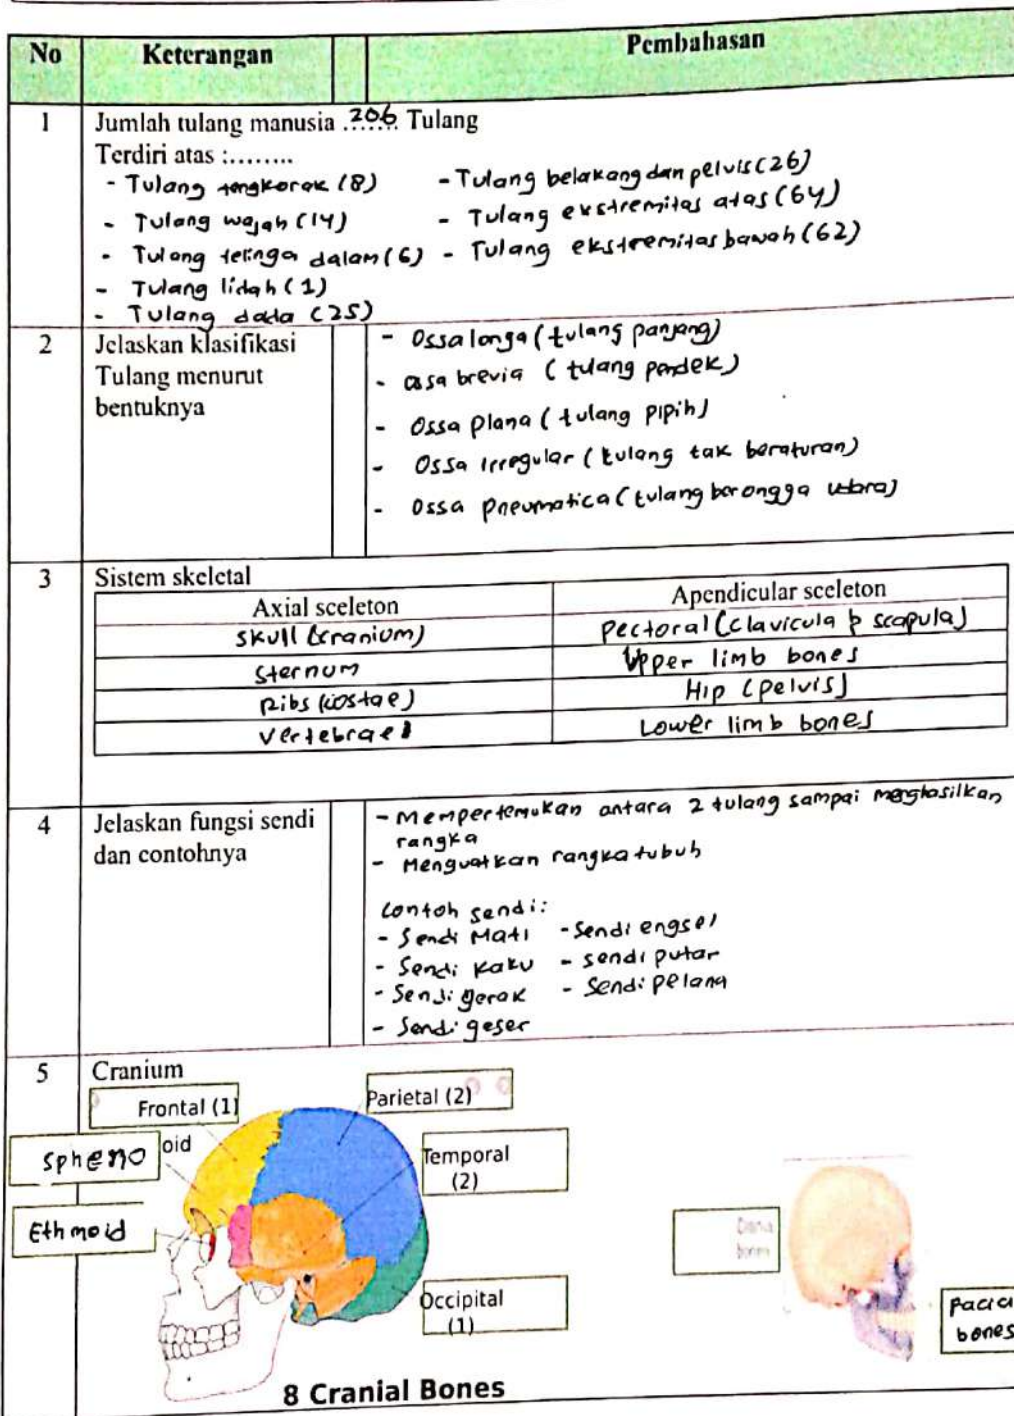 No Keterangan Pembahasan
1 Jumlah tulang manusia ..206.. Tulang
Terdiri atas :........
- Tulang tengkorak (8) - Tulang belakang dan pelvis (26)
- Tulang wajah (14) - Tulang ekstremitas atas (64)
- Tulang telinga dalam (6) - Tulang ekstremitas bawah (62)
- Tulang lidah (1)
- Tulang dada (25)
2 Jelaskan klasifikasi
Tulang menurut
bentuknya
- Ossa longa (tulang panjang)
- ossa brevia (tulang pendek)
- Ossa plana (tulang pipih)
- Ossa irregular (tulang tak beraturan)
- Ossa pneumatica (tulang berongga udara)
3 Sistem skeletal
Axial sceleton Apendicular sceleton
Skull (cranium) Pectoral (clavicula & scapula)
Sternum Upper limb bones
Ribs (costae) Hip (pelvis)
Vertebrae Lower limb bones
4 Jelaskan fungsi sendi
dan contohnya
- Mempertemukan antara 2 tulang sampai menghasilkan
rangka
- Menguatkan rangka tubuh
Contoh sendi:
- Sendi Mati - Sendi engsel
- Sendi kaku - sendi putar
- Sendi gerak - Sendi pelana
- Sendi geser
5 Cranium
Frontal (1) Parietal (2)
Spheno oid
Temporal
(2)
Ethmoid
bones
Occipital
(1)
Facia
bones
8 Cranial Bones